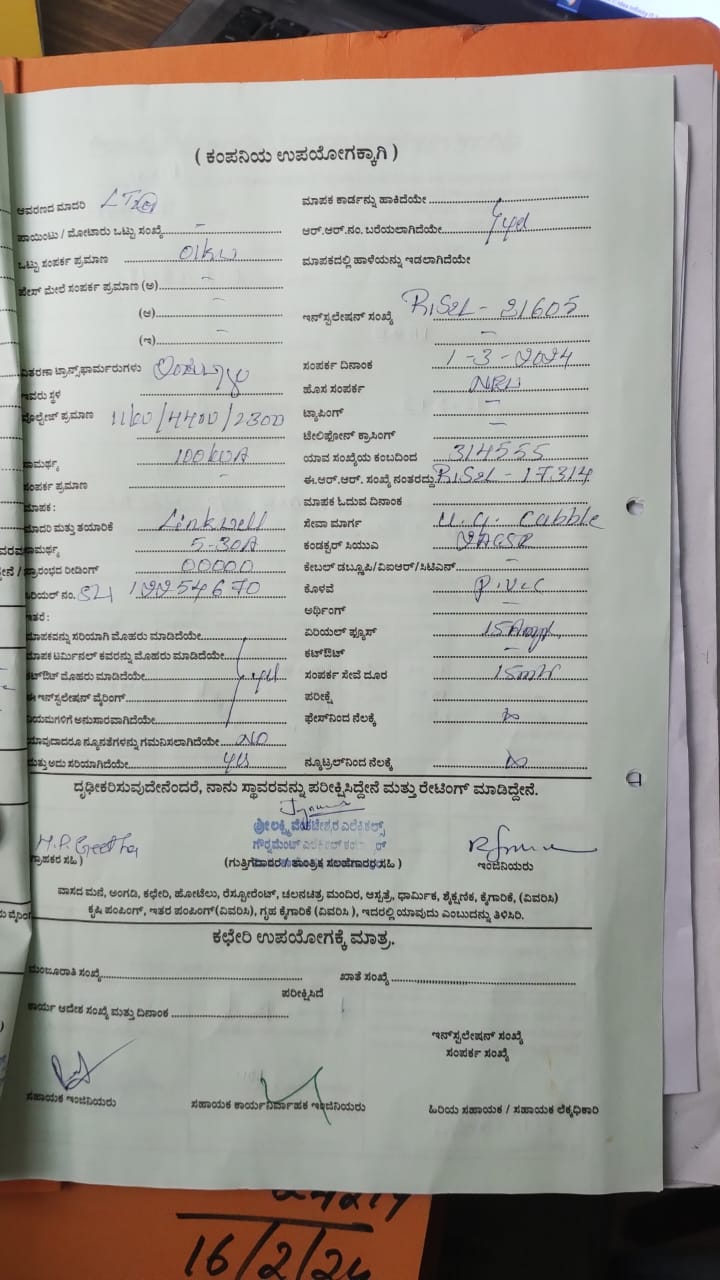 ( ಕಂಪನಿಯ ಉಪಯೋಗಕ್ಕಾಗಿ )
ಆವರಣದ ಮಾದರಿ
ಮಾಪಕ ಕಾರ್ಡನ್ನು ಹಾಕಿದೆಯೇ
ಪಾಯಿಂಟು / ಮೋಟಾರು ಒಟ್ಟು ಸಂಖ್ಯೆ -
ಆರ್.ಆರ್.ನಂ. ಬರೆಯಲಾಗಿದೆಯೇ
ಒಟ್ಟು ಸಂಪರ್ಕ ಪ್ರಮಾಣ 01kw
ಮಾಪಕದಲ್ಲಿ ಹಾಳೆಯನ್ನು ಇಡಲಾಗಿದೆಯೇ
ಫೇಸ್ ಮೇಲೆ ಸಂಪರ್ಕ ಪ್ರಮಾಣ (ಅ) -
(ಆ) -
ಇನ್‌ಸ್ಟಲೇಷನ್ ಸಂಖ್ಯೆ RJS2L - 21605
(ಇ) -
ವಿತರಣಾ ಟ್ರಾನ್ಸ್‌ಫಾರ್ಮರುಗಳು
ಸಂಪರ್ಕ ದಿನಾಂಕ 1-3-2024
ಇವರು ಸ್ಥಳ
ಹೊಸ ಸಂಪರ್ಕ New
ವೋಲ್ಟೇಜ್ ಪ್ರಮಾಣ
ಟ್ಯಾಪಿಂಗ್ -
ಟೆಲಿಫೋನ್ ಕ್ರಾಸಿಂಗ್ -
ಸಾಮರ್ಥ್ಯ 100kVA
ಯಾವ ಸಂಖ್ಯೆಯ ಕಂಬದಿಂದ 314555
ಸಂಪರ್ಕ ಪ್ರಮಾಣ -
ಈ.ಆರ್.ಆರ್. ಸಂಖ್ಯೆ ನಂತರದ್ದು RJS2L - 17314
ಮಾಪಕ :
ಮಾಪಕ ಓದುವ ದಿನಾಂಕ
ಮಾದರಿ ಮತ್ತು ತಯಾರಿಕೆ Linkwell
ಸೇವಾ ಮಾರ್ಗ U.G. Cabble
ಸಾಮರ್ಥ್ಯ 5-30A
ಕಂಡಕ್ಟರ್ ಸಿಯುಎ
ಪ್ರಾರಂಭದ ರೀಡಿಂಗ್ 00000
ಕೇಬಲ್ ಡಬ್ಲ್ಯೂಪಿ/ವಿಐಆರ್/ಸಿಟಿಎನ್ -
ಸಿರಿಯಲ್ ನಂ. 12254670
ಕೊಳವೆ P.V.C
ಅರ್ಥಿಂಗ್ -
ಇತರೆ :
ಮಾಪಕವನ್ನು ಸರಿಯಾಗಿ ಮೊಹರು ಮಾಡಿದೆಯೇ
ಏರಿಯಲ್ ಫ್ಯೂಸ್ 15Amps
ಮಾಪಕ ಟರ್ಮಿನಲ್ ಕವರನ್ನು ಮೊಹರು ಮಾಡಿದೆಯೇ
ಕಟ್‌ಔಟ್ -
ಕಟ್‌ಔಟ್ ಮೊಹರು ಮಾಡಿದೆಯೇ yes
ಸಂಪರ್ಕ ಸೇವೆ ದೂರ 15mtr
ಈ ಇನ್‌ಸ್ಟಲೇಷನ್ ವೈರಿಂಗ್
ಪರೀಕ್ಷೆ
ನಿಯಮಗಳಿಗೆ ಅನುಸಾರವಾಗಿದೆಯೇ
ಫೇಸ್‌ನಿಂದ ನೆಲಕ್ಕೆ
ಯಾವುದಾದರೂ ನ್ಯೂನತೆಗಳನ್ನು ಗಮನಿಸಲಾಗಿದೆಯೇ NO
ಮತ್ತು ಅದು ಸರಿಯಾಗಿದೆಯೇ yes
ನ್ಯೂಟ್ರಲ್‌ನಿಂದ ನೆಲಕ್ಕೆ
ದೃಢೀಕರಿಸುವುದೇನೆಂದರೆ, ನಾನು ಸ್ಥಾವರವನ್ನು ಪರೀಕ್ಷಿಸಿದ್ದೇನೆ ಮತ್ತು ರೇಟಿಂಗ್ ಮಾಡಿದ್ದೇನೆ.
ಶ್ರೀ ಲಕ್ಷ್ಮಿ ವೆಂಕಟೇಶ್ವರ ಎಲೆಕ್ಟ್ರಿಕಲ್ಸ್
H.P. Geetha
ಗೌರ್ನಮೆಂಟ್ ಎಲೆಕ್ಟ್ರಿಕಲ್
ಗ್ರಾಹಕರ ಸಹಿ )
(ಗುತ್ತಿಗೆದಾರರ / ತಾಂತ್ರಿಕ ಸಲಹೆಗಾರರ ಸಹಿ )
ಇಂಜಿನಿಯರು
ವಾಸದ ಮನೆ, ಅಂಗಡಿ, ಕಛೇರಿ, ಹೋಟೆಲು, ರೆಸ್ಟೋರೆಂಟ್, ಚಲನಚಿತ್ರ ಮಂದಿರ, ಆಸ್ಪತ್ರೆ, ಧಾರ್ಮಿಕ, ಶೈಕ್ಷಣಿಕ, ಕೈಗಾರಿಕೆ, (ವಿವರಿಸಿ)
ಕೃಷಿ ಪಂಪಿಂಗ್, ಇತರ ಪಂಪಿಂಗ್(ವಿವರಿಸಿ), ಗೃಹ ಕೈಗಾರಿಕೆ (ವಿವರಿಸಿ ), ಇದರಲ್ಲಿ ಯಾವುದು ಎಂಬುದನ್ನು ತಿಳಿಸಿರಿ.
ಕಛೇರಿ ಉಪಯೋಗಕ್ಕೆ ಮಾತ್ರ.
ಮಂಜೂರಾತಿ ಸಂಖ್ಯೆ
ಖಾತೆ ಸಂಖ್ಯೆ
ಪರೀಕ್ಷಿಸಿದೆ
ಕಾರ್ಯ ಆದೇಶ ಸಂಖ್ಯೆ ಮತ್ತು ದಿನಾಂಕ
ಇನ್‌ಸ್ಟಲೇಷನ್ ಸಂಖ್ಯೆ
ಸಂಪರ್ಕ ಸಂಖ್ಯೆ
ಸಹಾಯಕ ಇಂಜಿನಿಯರು
ಸಹಾಯಕ ಕಾರ್ಯನಿರ್ವಾಹಕ ಇಂಜಿನಿಯರು
ಹಿರಿಯ ಸಹಾಯಕ / ಸಹಾಯಕ ಲೆಕ್ಕಧಿಕಾರಿ
16/2/24